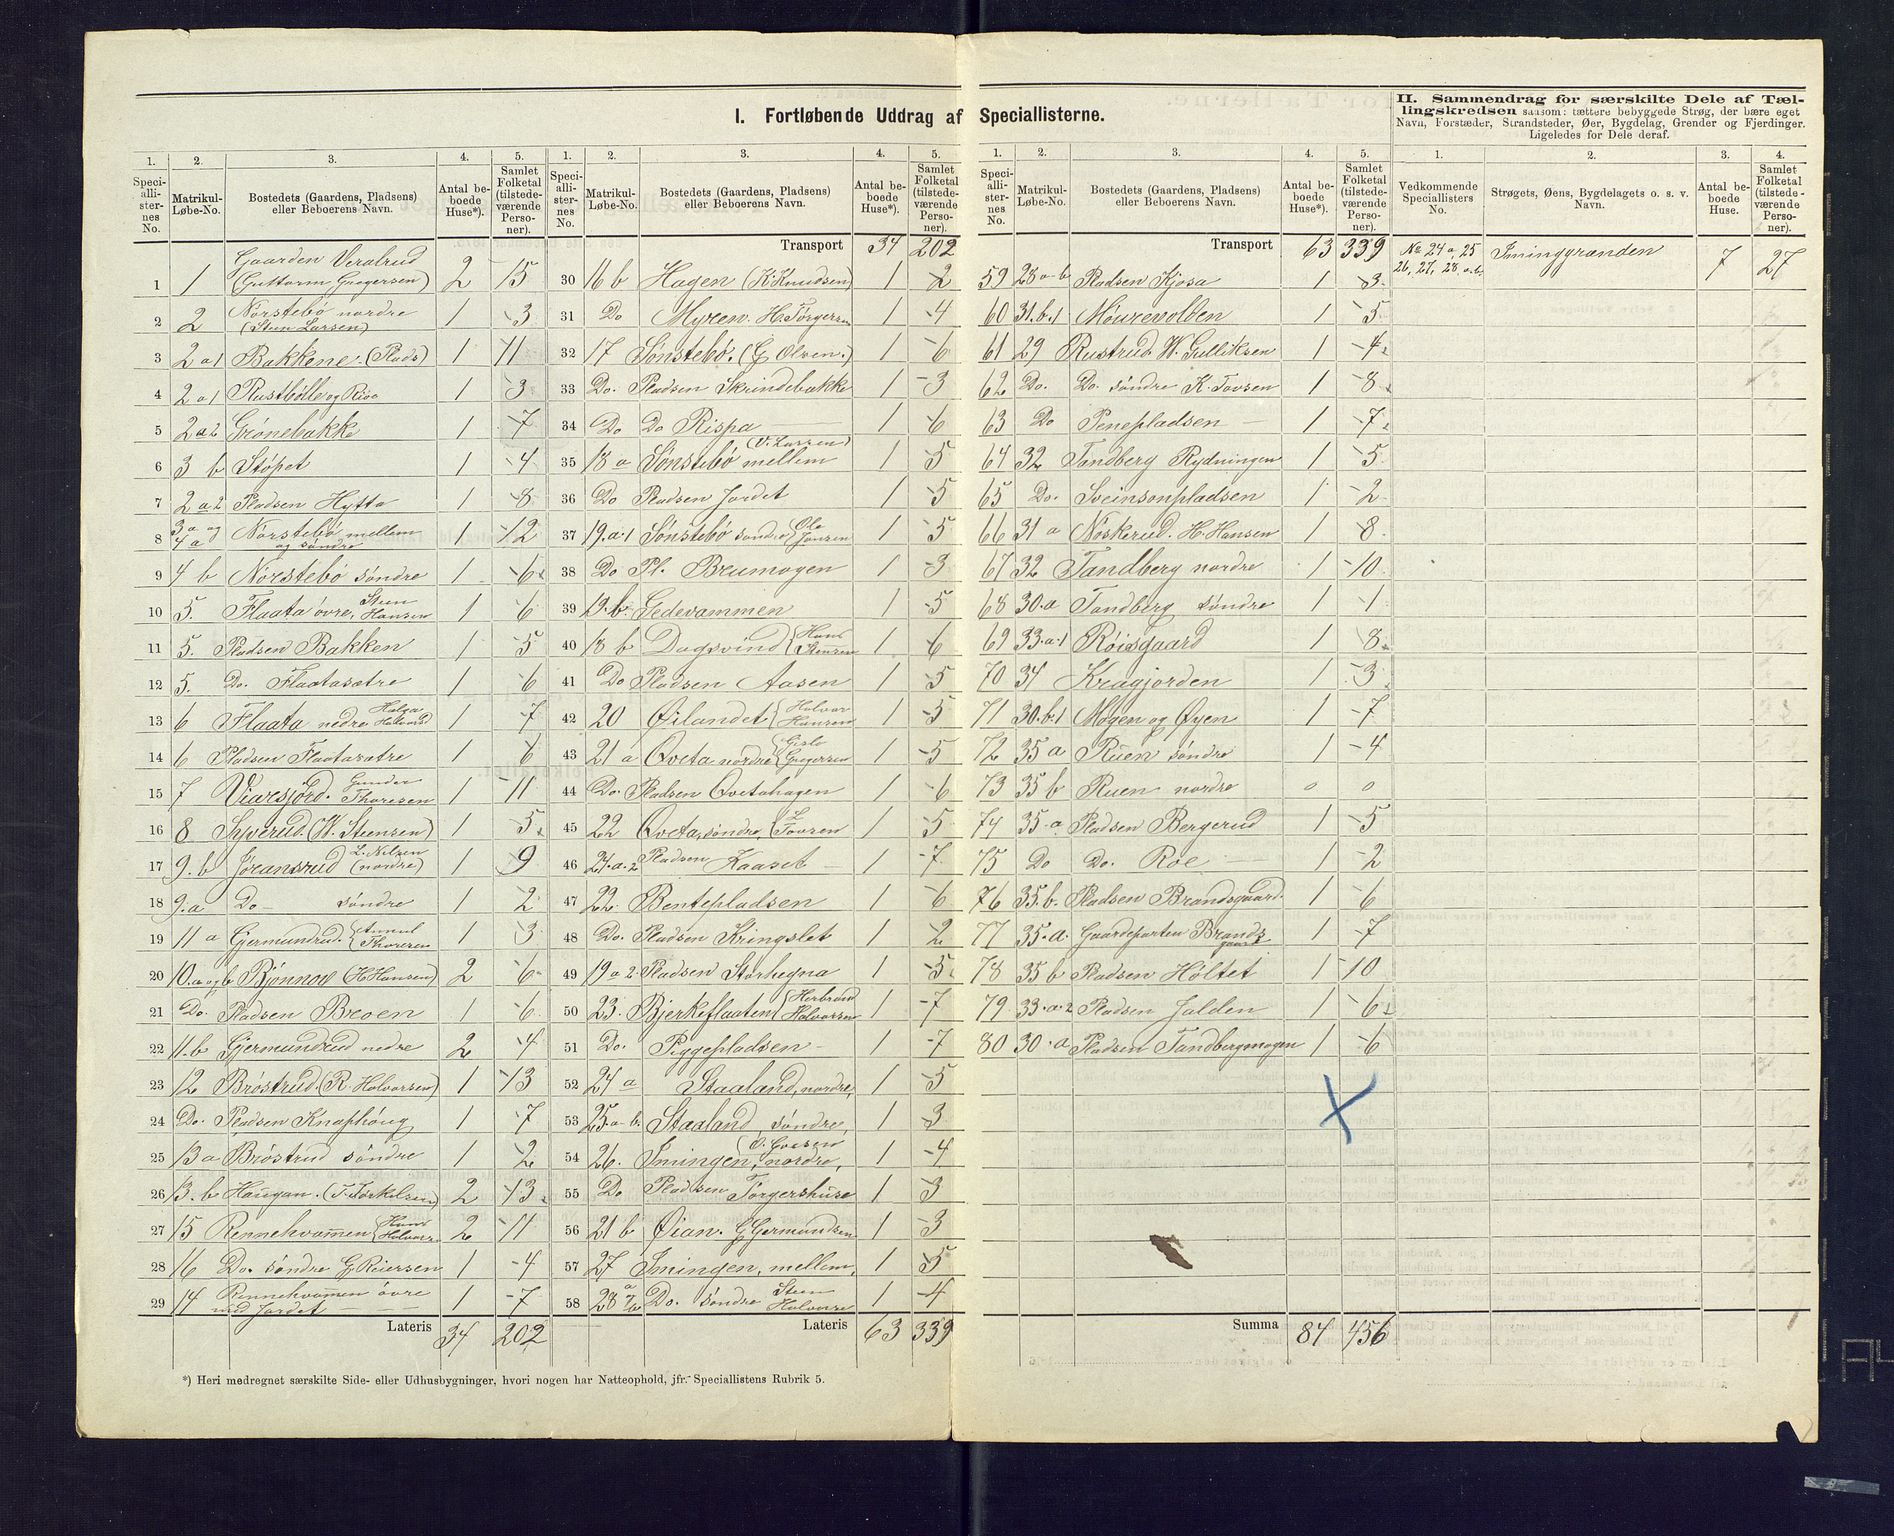 I. Fortløbende Uddrag af Speciallisterne.
1. 2. 3. 4. 5.
Speciallisternes No. Matrikul-Løbe-No. Bostedets (Gaardens, Pladsens) eller Beboerens Navn. Antal beboede Huse*). Samlet Folketal (tilstedeværende Personer).
1 1 Gaarden Veralrud (Guttorm Gregersen) 2 15
2 2 Norstebö nordre (Steen Larsen) 1 3
3 2 a 1 Bakkene (Plads) 1 11
4 2 a 1 Rustbölle og Rioa 1 3
5 2 a 2 Grönebakke 1 7
6 3 b Stöpet 1 4
7 2 a 2 Pladsen Hytta 1 8
8 3 a og 4 a Norstebö mellem og söndre 1 12
9 4 b Norstebö söndre 1 6
10 5. Flaata övre, Steen Hansen 1 6
11 5. Pladsen Bakken 1 5
12 5. Do. Flaatasætre 1 6
13 6 Flaata nedre Helga Halvord 1 7
14 6 Pladsen Flaatasætre 1 6
15 7 Viarsjord. Gunder Thoresen 1 11
16 8 Syverud. (W. Steensen) 1 5
17 9. b Joransrud L. Nilsen (nordre) 1 9
18 9. a Do söndre 1 2
19 11 a Gjermundrud. Thoresen 1 3
20 10. a og b Björnnoe (H Hansen) 2 6
21 Do. Pladsen Broen 1 6
22 11. b Gjermundrud nedre 2 4
23 12 Bröstrud. (R Halvorsen) 1 13
24 Do. Pladsen Knaphöug 1 7
25 13 a Bröstrud söndre 1 2
26 13. b Haugan. (T. Torkelsen) 2 13
27 15 Rennehvammen Hans Halvors 2 11
28 16 Do. söndre G. Reiersen 1 4
29 14 Rennehvammen övre med Jordet 1 7
Lateris 34 202
*) Heri medregnet særskilte Side- eller Udhusbygninger, hvori nogen har Natteophold, jfr. Speciallistens Rubrik 5.
1. 2. 3. 4. 5.
Speciallisternes No. Matrikul-Løbe-No. Bostedets (Gaardens, Pladsens) eller Beboerens Navn. Antal beboede Huse*). Samlet Folketal (tilstedeværende Personer).
Transport 34 202
30 16 b Hagen (K Knudsen) 1 2
31 Do Myren. H. Törgersen 1 4
32 17 Sönstebö. (G Olsen.) 1 6
33 Do. Pladsen Skrindebakke 1 3
34 Do Do Rispa 1 6
35 18 a Sönstebö mellem (V. Larsen) 1 5
36 Do Pladsen Jordet 1 5
37 19. a. 1 Sönstebö söndre Ole Jonsen 1 5
38 Do Pl. Brumogen 1 3
39 19. b. Gedevammen 1 5
40 18 b Dagsvind Hans Steensen 1 6
41 Do Pladsen Aasen 1 5
42 20 Öilandet Halvor Hansen 1 5
43 21 a Qveta nordre Gislo Gregersen 1 5
44 Do. Pladsen Qvetahagen 1 6
45 22 Qveta, söndre, L Tovsen 1 5
46 21. a. 2 Pladsen Kaaset 1 7
47 22. Bentepladsen 1 6
48 Do. Pladsen Kringslet 1 2
49 19 a 2 Pladsen Storhegna 1 5
50 23. Bjerkeflaaten Herbrand Halvorsen 1 7
51 Do. Piggepladsen 1 7
52 24 a Staaland, nordre, 1 5
53 25. a-b. Staaland, söndre, 1 3
54 26. Imingen, nordre, 1 4
55 Do Pladsen Törgershuse 1 3
56 21 b Öian. G Germundsen 1 3
57 27 Imingen, mellem, 1 5
58 28 a/b Do. söndre Steen Halvors 1 4
Lateris 63 339
1. 2. 3. 4. 5.
Speciallisternes No. Matrikul-Løbe-No. Bostedets (Gaardens, Pladsens) eller Beboerens Navn. Antal beboede Huse*). Samlet Folketal (tilstedeværende Personer).
Transport 63 339
59 28 a-b Pladsen Kjosa 1 3
60 31. b. 1 Mourevolden 1 5
61 29 Rustrud W. Gulliksen 1 4
62 Do. Do söndre K. Tovsen 1 8
63 Do Penepladsen 1 7
64 32 Tandberg Rydningen 1 5
65 Do. Sveinsonpladsen 1 2
66 31 a Noskerud. H. Hansen 1 8
67 32 Tandberg nordre 1 10
68 30. a Tandberg söndre 1 1
69 33. a. 1 Röisgaard 1 8
70 34 Kragjorden 1 3
71 30. b. 1 Mogen og Öyen 1 7
72 35 a Ruen söndre 1 4
73 35 b Ruen nordre 0 0
74 35. a Pladsen Bergerud 1 5
75 Do Do. Roe 1 2
76 35. b. Pladsen Brandsgaard 1 6
77 35. a. Gaardeparten Brandsgaard 1 7
78 35 b Pladsen Höltet 1 10
79 33. a. 2 Pladsen Jalden 1 6
80 30. a Pladsen Tandbergmogen 1 6
Summa 84 456
II. Sammendrag for særskilte Dele af Tællingskredsen saasom: tættere bebyggede Strøg, der bære eget Navn, Forstæder, Strandsteder, Øer, Bygdelag, Grender og Fjerdinger. Ligeledes for Dele deraf.
1. 2. 3. 4.
Vedkommende Speciallisters No. Strøgets, Øens, Bygdelagets o. s. v. Navn. Antal beboede Huse. Samlet Folketal (tilstedeværende Personer).
No 24 a, 25 26, 27, 28. a. b. Iminggranden 7 27